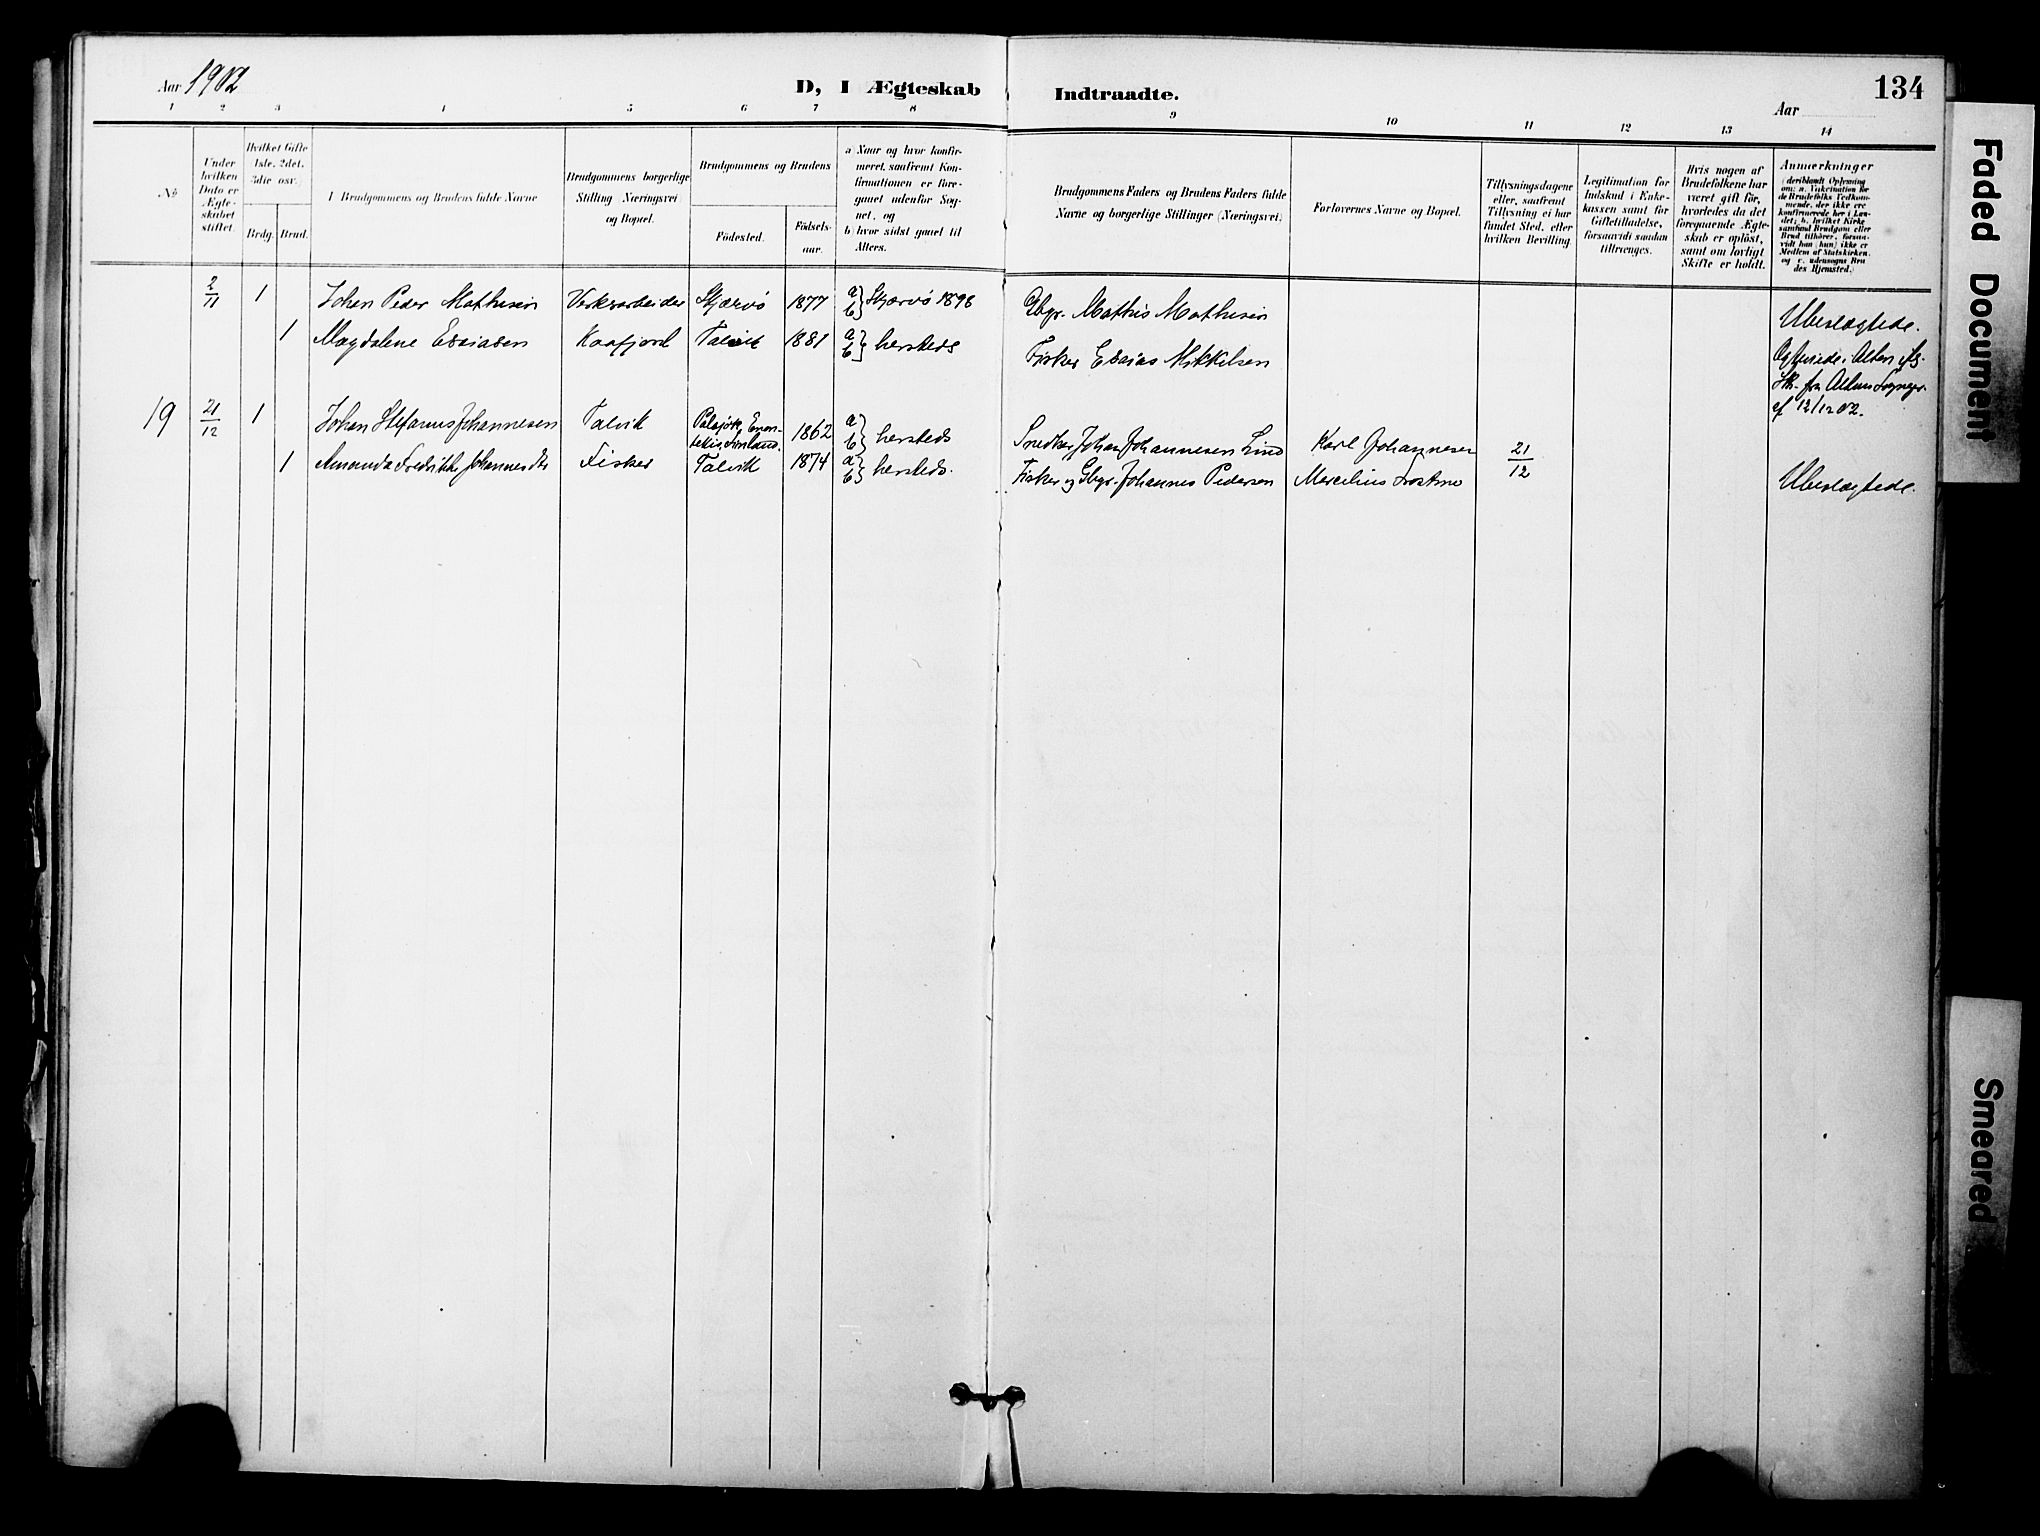 Aar 1902
D, I Ægteskab Indtraadte.
Aar
134
1 2 3 4 5 6 7 8 9 10 11 12 13 14
No
Under hvilken Dato er Ægte-skabet stiftet.
Hvilket Gifte 1ste, 2det, 3die osv.
Brdg. Brud.
Brudgommens og Brudens fulde Navne
Brudgommens borgerlige Stilling Næringsvei og Bopæl.
Brudgommens og Brudens
Födested.
Födsels-aar.
a Naar og hvor konfir-meret, saafremt Kon-firmationen er fore-gaaet udenfor Sog-net, og
b) hvor sidst gaaet til Alters.
Brudgommens Faders og Brudens Faders fulde Navne og borgerlige Stillinger (Næringsvei)
Forlovernes Navne og Bopæl.
Tillysningsdagene eller, saafremt Tillysning ei har fundet Sted, efter hvilken Bevilling
Legitimation for Indskud i Enke-kassen samt for Giftetilladelse, forsaavidt saadan tiltrænges.
Hvis nogen af Brudefolkene har været gift för, hvorledes da det foregaaende Ægte-skab er oplöst, samt om lovligt Skifte er holdt.
Anmærkninger
(deriblandt Oplysning om: a. Vakcination for de Brudefolks Vedkom-mende, der ikke ere konfirmerede her i Lan-det; b. hvilket Kirke samfund Brudgom eller Brud tilhörer, forsaa-vidt han (hun) ikke er Medlem af Statskirken, og c. udensogns Bru des Hjemsted.)
2/11 1 Johan Peder Mathisen Verksarbeider Skjærvö 1877 a b } Skjærvö 1898 Gbgr. Mathis Mathisen
1 Magdalene Esaiasen Kaafjord Talvik 1881 a b } hersteds Fisker Esaias Mikkelsen Ubeslægtede.
fra Altens Sognepr. af 12/12 02.
19 21/12 1 Johan Stefanus Johannesen Talvik Palojok, Enon-tekis, Finland. 1862 a b } hersteds Snedker Johan Johannesen Lind Karl Johannesen 21/12
1 Amanda Fredrikke Johannesdtr Fisker Talvik 1874 a b } hersteds. Fisker og Gbgr. Johannes Pedersen Marcelius Ubeslægtede.
Faded Document
Smeared